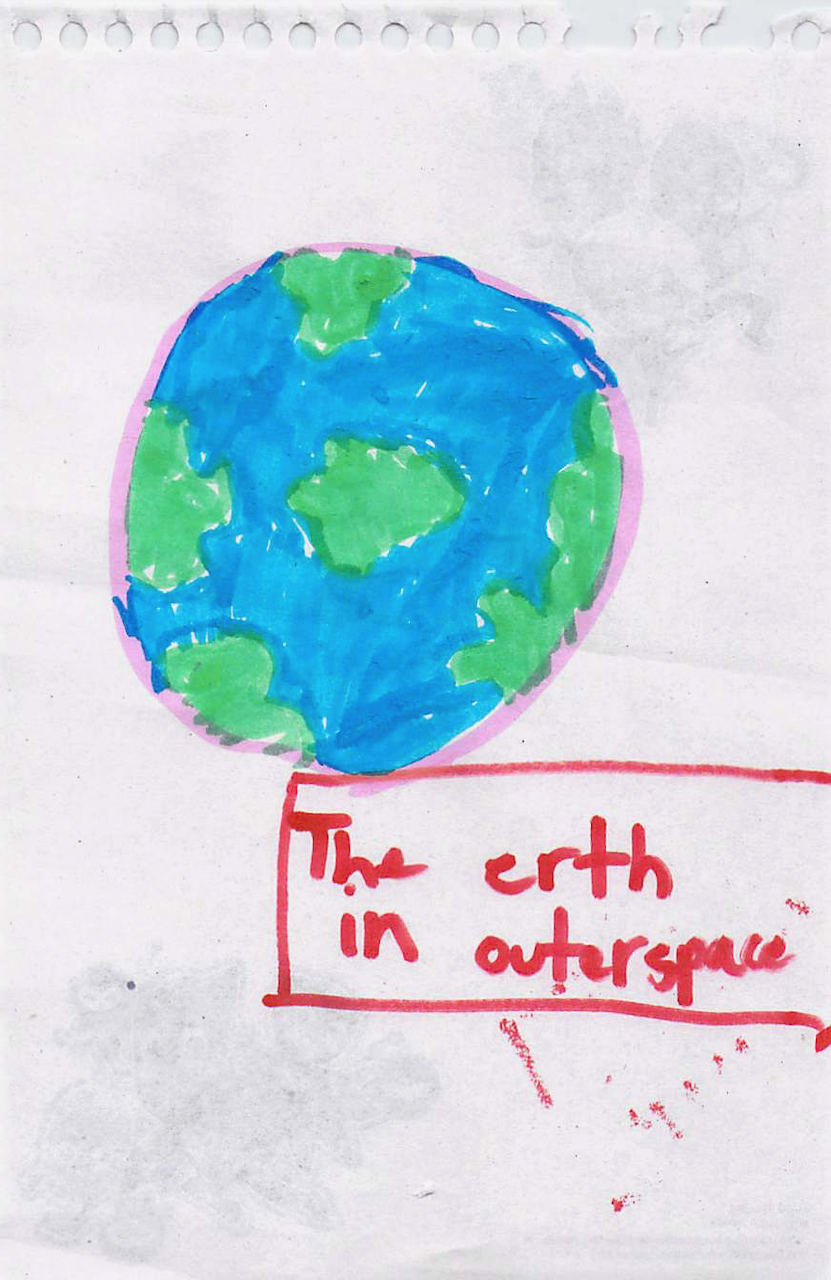 The erth
in outerspace